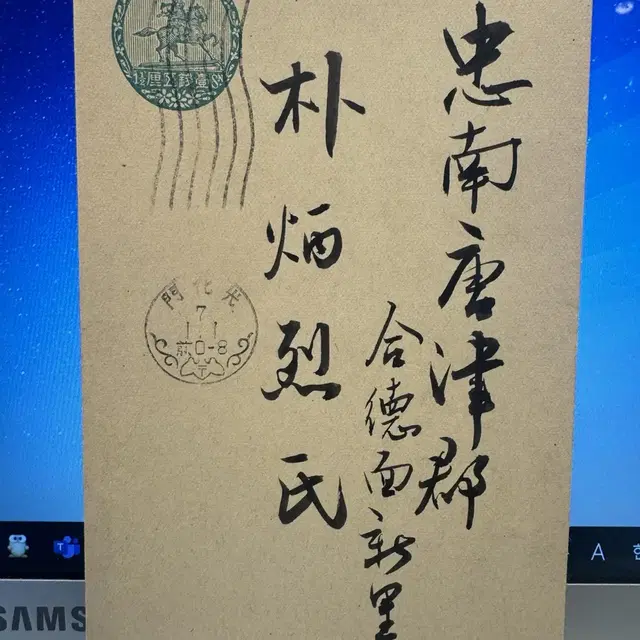 忠南唐津郡
合德面新里
朴炳烈氏
光化門
7
前0-8
SAMS
A